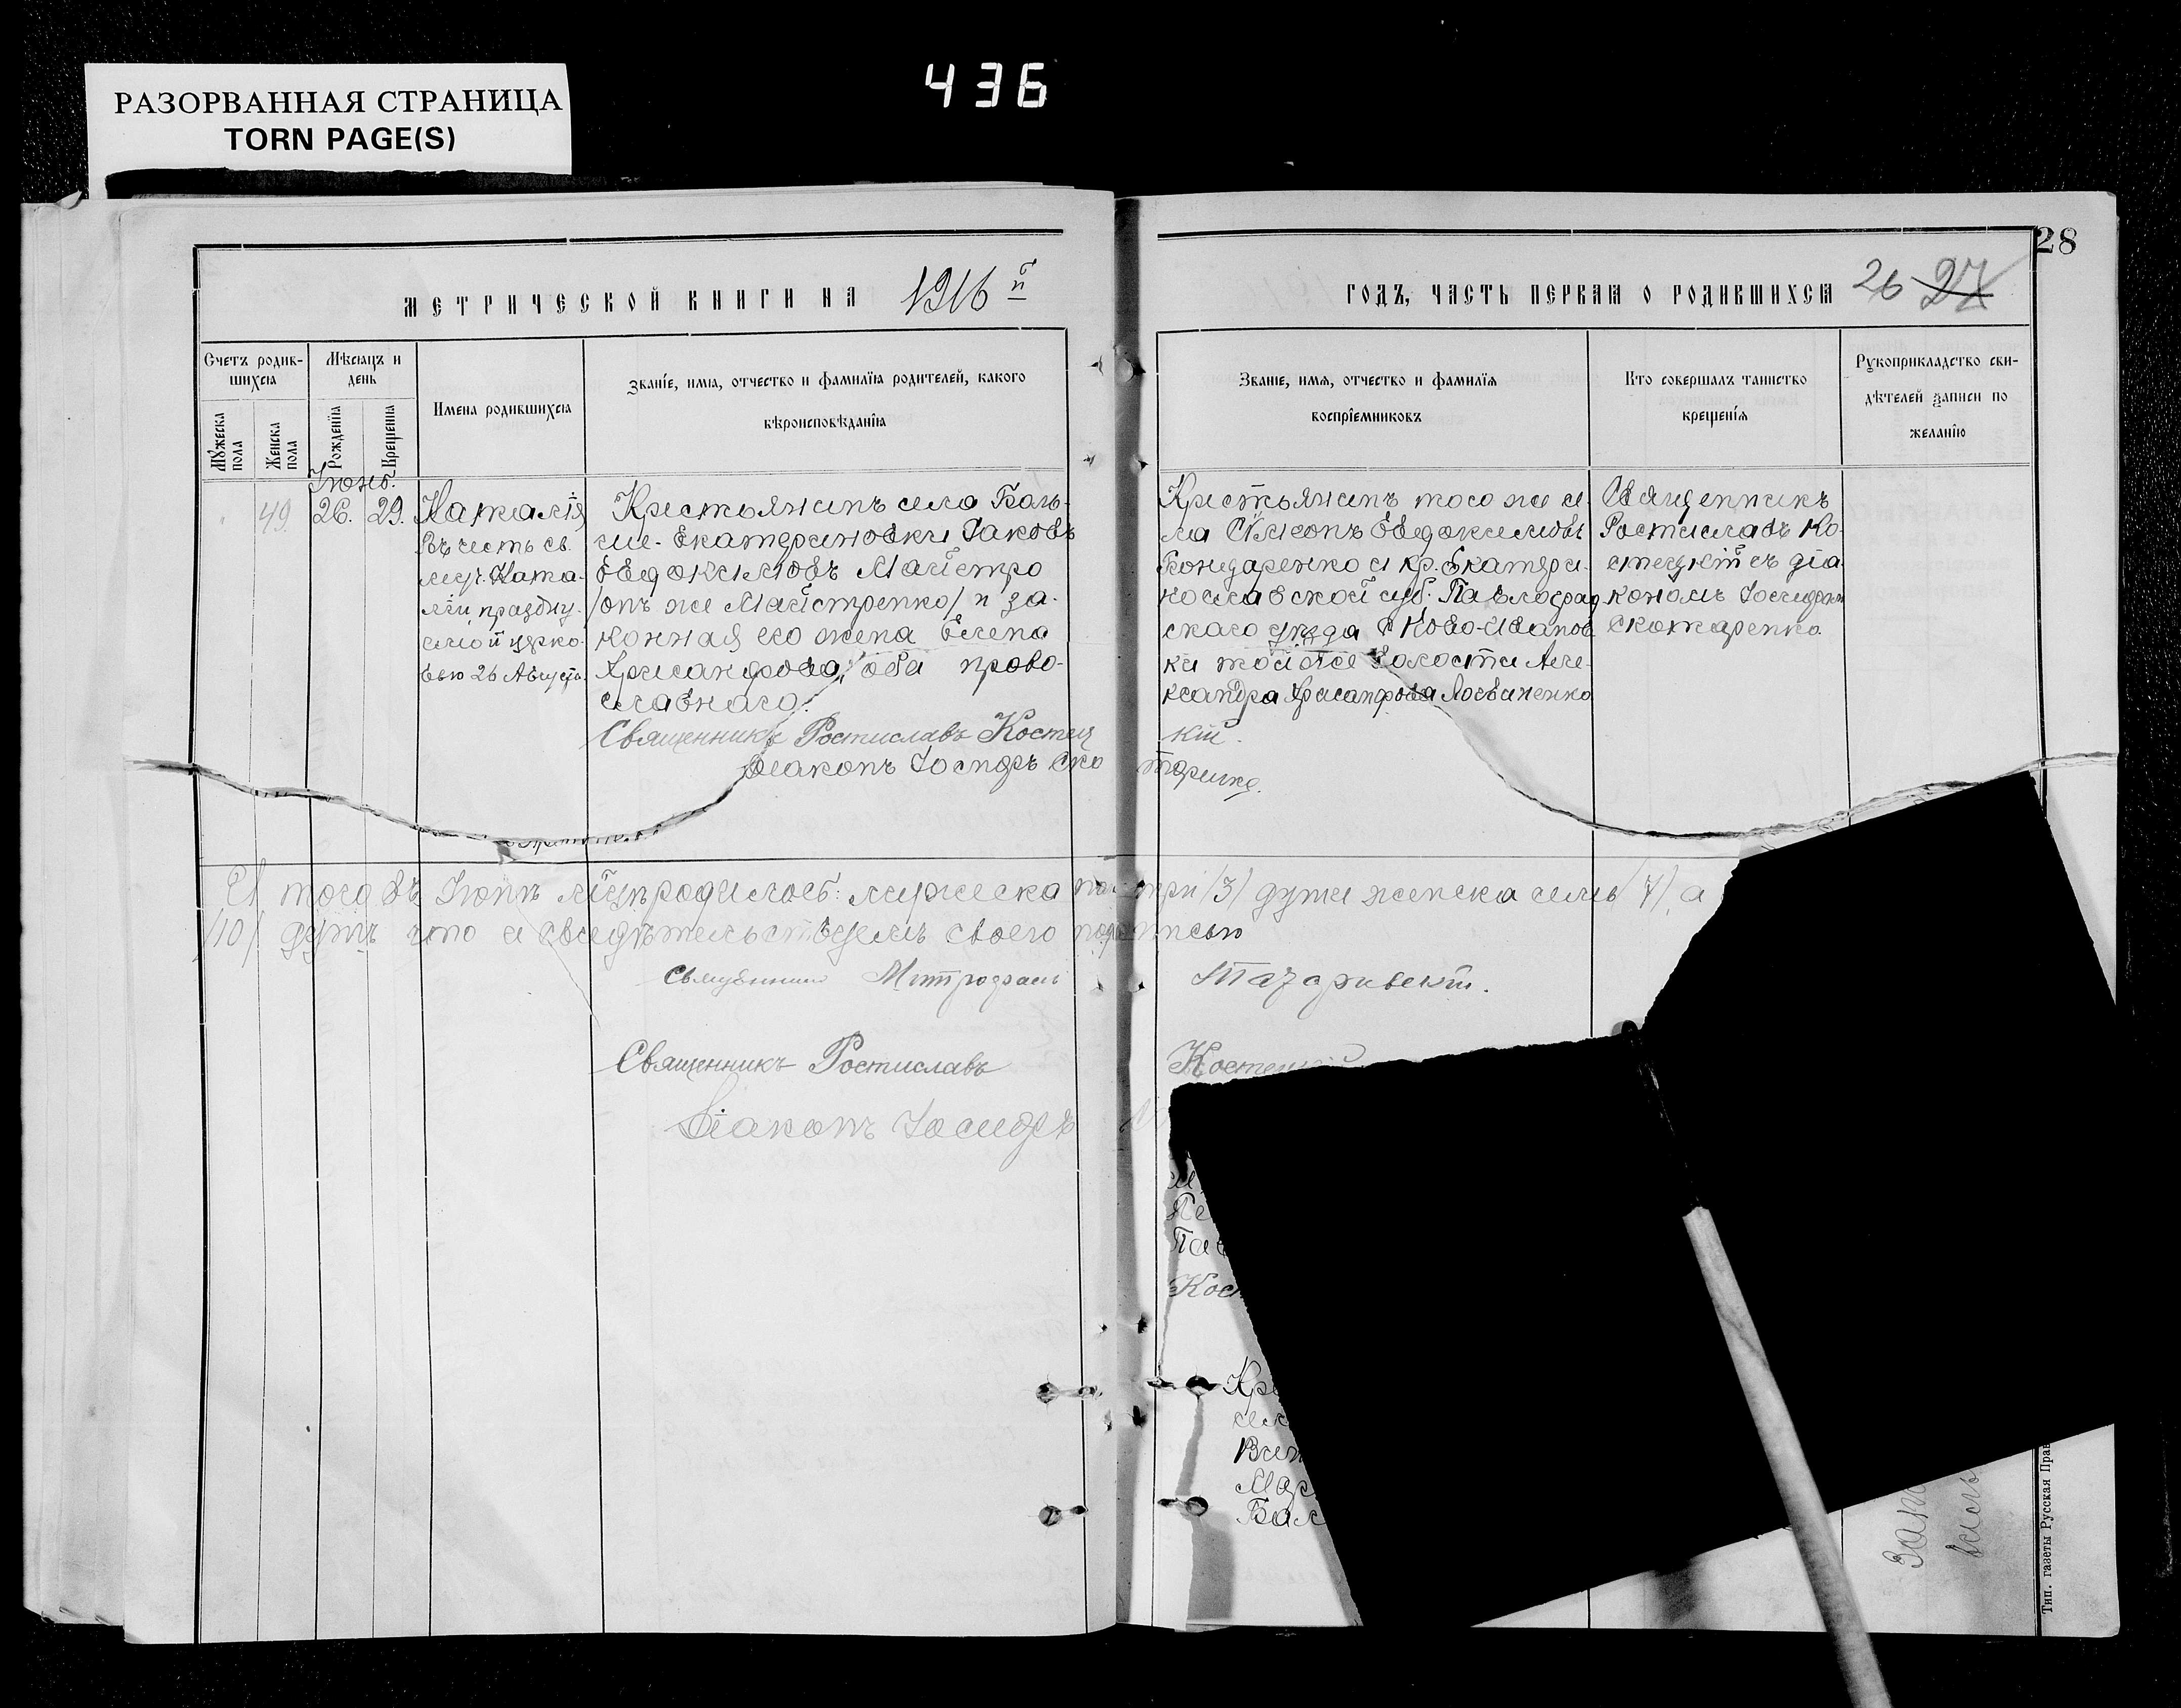 436
РАЗОРВАННАЯ СТРАНИЦА
TORN PAGE(S)
28
МЕТРИЧЕСКОЙ КНИГИ НА 1916 й
ГОДЪ, ЧАСТЬ ПЕРВАЯ О РОДИВШИХСЯ 26 27
Счетъ родив-
шихся
Мужеска пола
Женска пола
Мѣсяцъ и
день
Рожденїя
Крещенїя
Имена родившихся
Званїе, имя, отчество и фамилїя родителей, какого
вѣроисповѣданїя
Званїе, имя, отчество и фамилїя
воспрїемниковъ
Кто совершалъ таинство
крещенїя
Рукоприкладство сви-
дѣтелей записи по
желанїю
Іюнь.
49
26.
29.
Наталія
въ честь св.
муч. Ната-
ліи, празднуе-
мой церко-
вью 26 Августа.
Крестьянинъ села Боль-
ше-Екатериновки Іаковъ
Евдокимовъ Майстро
/онъ же Майстренко/ и за-
конная его жена Елена
Хрисанфова, оба право-
славнаго.
Крестьянинъ того же се-
ла Сѵмеонъ Евдокимовъ
Бондаренко и кр. Екатери-
нославской губ. Павлоград
скаго уѣзда с. Ново-Иванов
ки той же волости Але-
ксандра Хрисанфова Логвиненко
Священникъ
Ростиславъ Ко-
стецкій съ діа-
кономъ Іосифомъ
Скотаренко.
Священникъ Ростиславъ Костецкій.
Діаконъ Іосифъ Скотаренко.
И того въ Іюнѣ м̃цѣ родилось: мужеска пола три /3/ души женска семь /7/, а
/10/ душъ что и свидѣтельствуемъ своею подписью
Священникъ Митрофанъ
Священникъ Ростиславъ Костецкій
Діаконъ Іосифъ
Пе
Пав
Кос
Кре
Вик
Мар
Бал
Тип. газеты Русская Прав